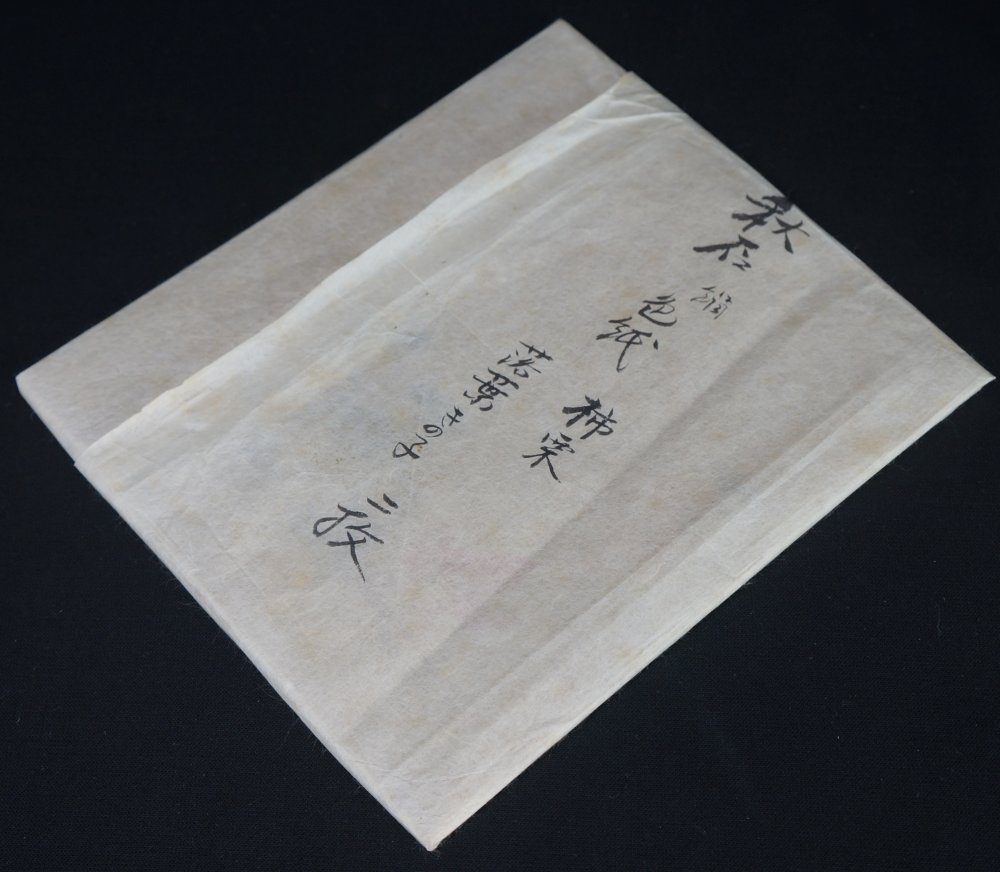 秋 絹 色紙
柿栗
落葉きの子
二枚